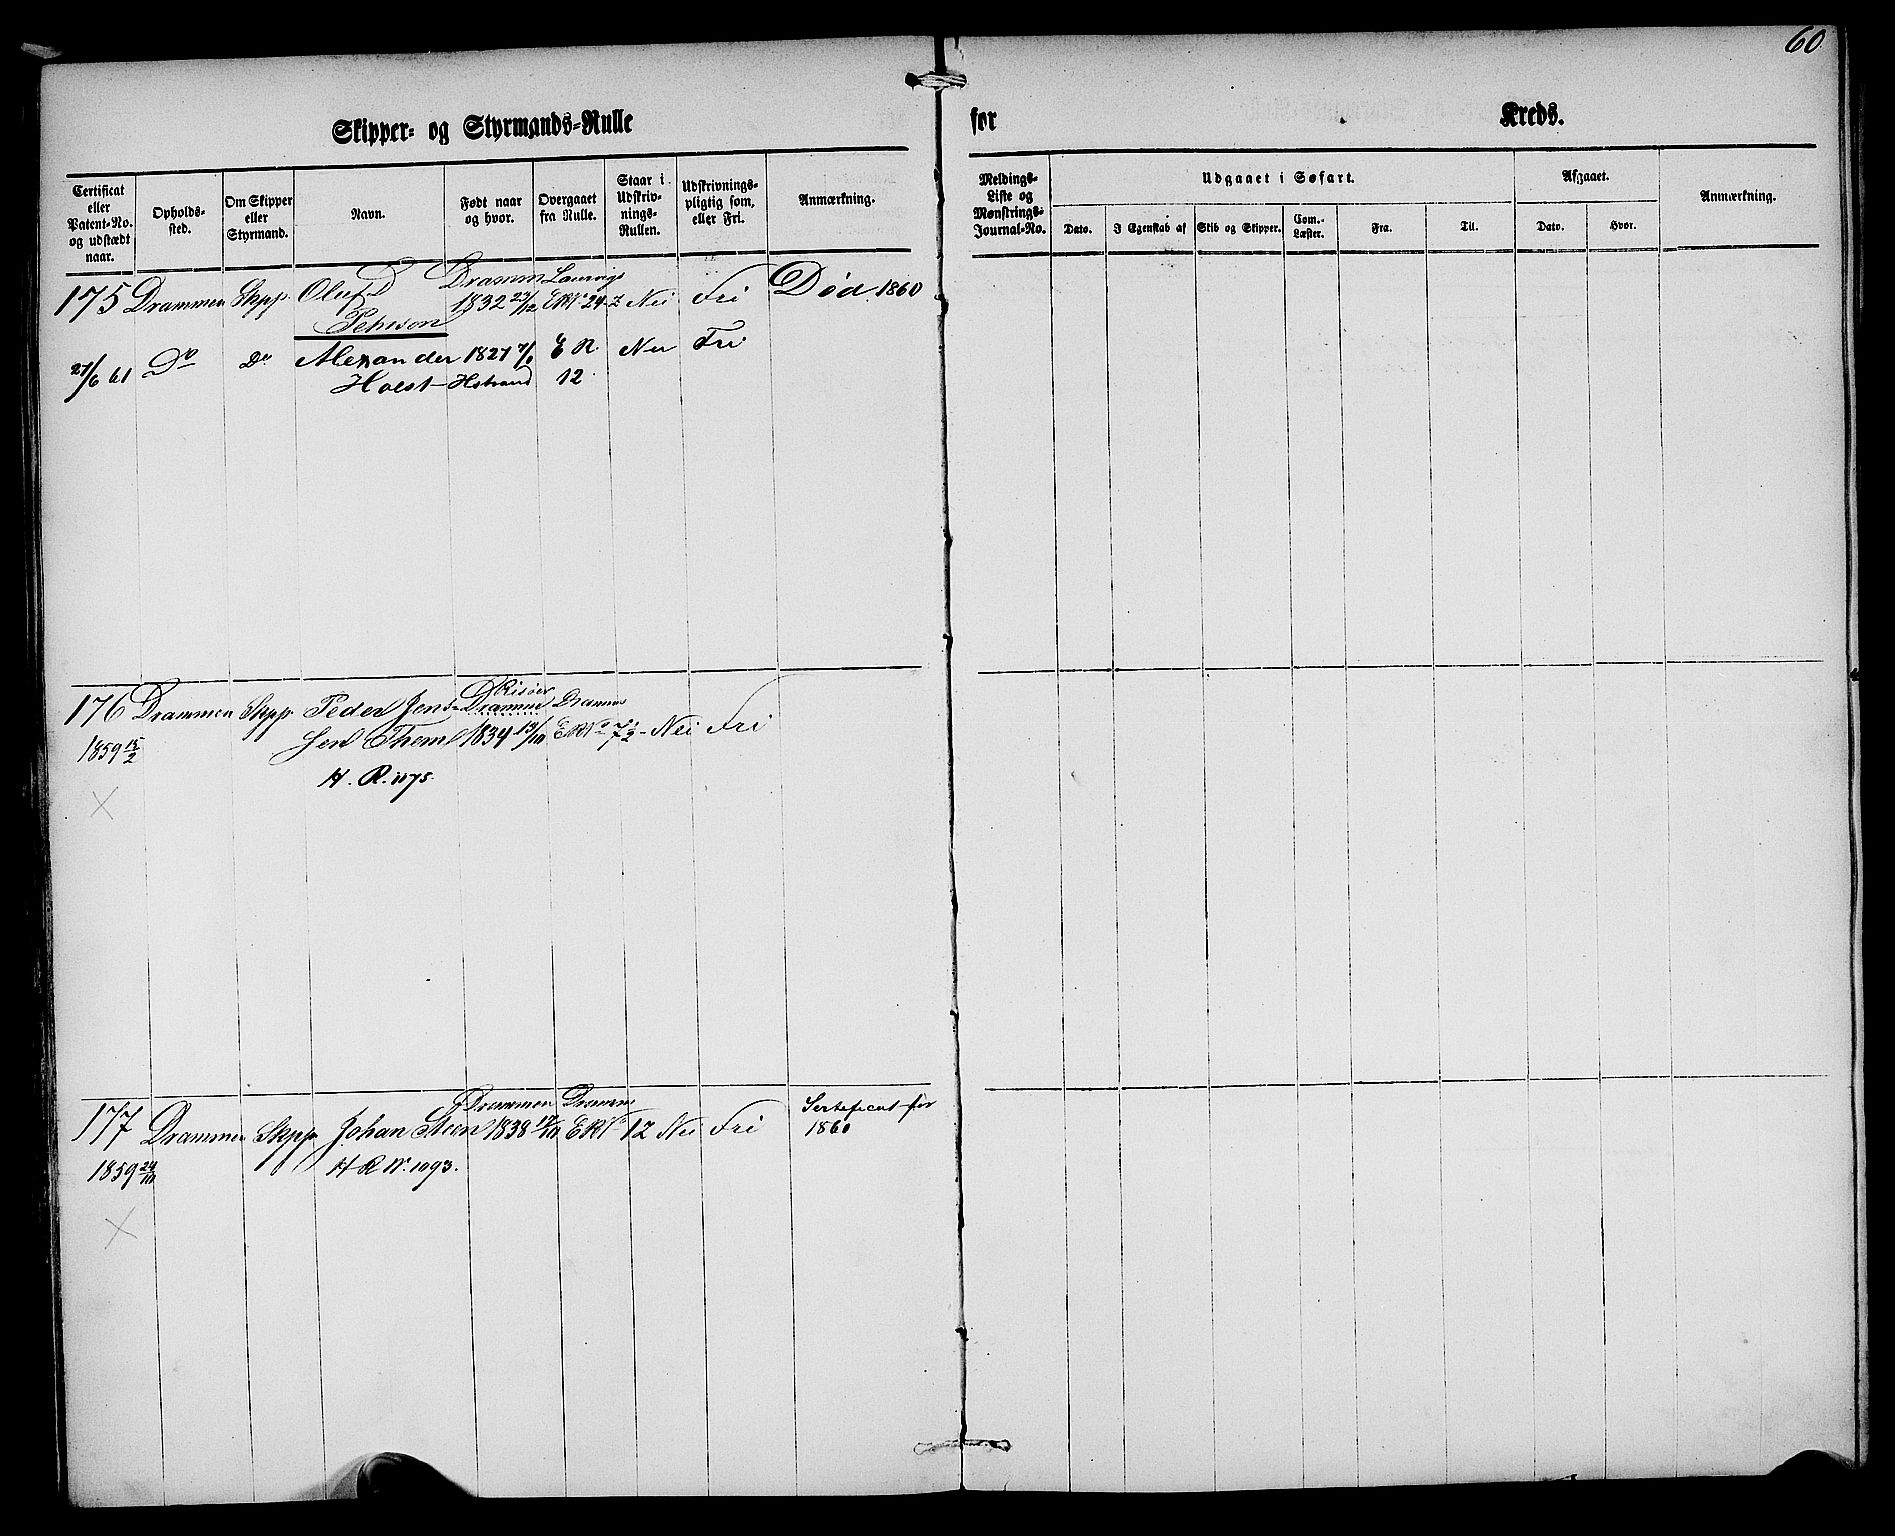 60
Skipper- og Styrmands-Rulle for Kreds.
Certificat eller Patent-No. og udstædt naar.
Opholds-sted.
Om Skipper eller Styrmand.
Navn.
Født naar og hvor.
Overgaaet fra Rulle.
Staar i Udskriv-nings-Rullen.
Udskrivnings-pligtig som, eller Fri.
Anmærkning.
Meldings-Liste og Mønstrings-Journal-No.
Udgaaet i Søfart.
Dato.
I Egenskab af
Skib og Skipper.
Com.-Læster.
Fra.
Til.
Afgaaet.
Dato.
Hvor.
Anmærkning.
175 Drammen Skpp. Oluf Dramm Laurvigs
1832 23/12 ERN 24-2 Nei Fri Død 1860
27/6 61 Do Do Alexander 1827 E R Nei Fri
Holst Hstrand 12
176 Drammen Skpp. Peder Jens- Risøer Drammen Drammens
1859 15/2 sen Them 1834 13/10 ERNo Nei Fri
H. R. 1175.
177 Drammen Skpp. Johan Steen Drammen Drammens
1838 17/10 ERNo 12 Nei Fri Sertificat for 1860
1859 24/10 H R No. 1093.